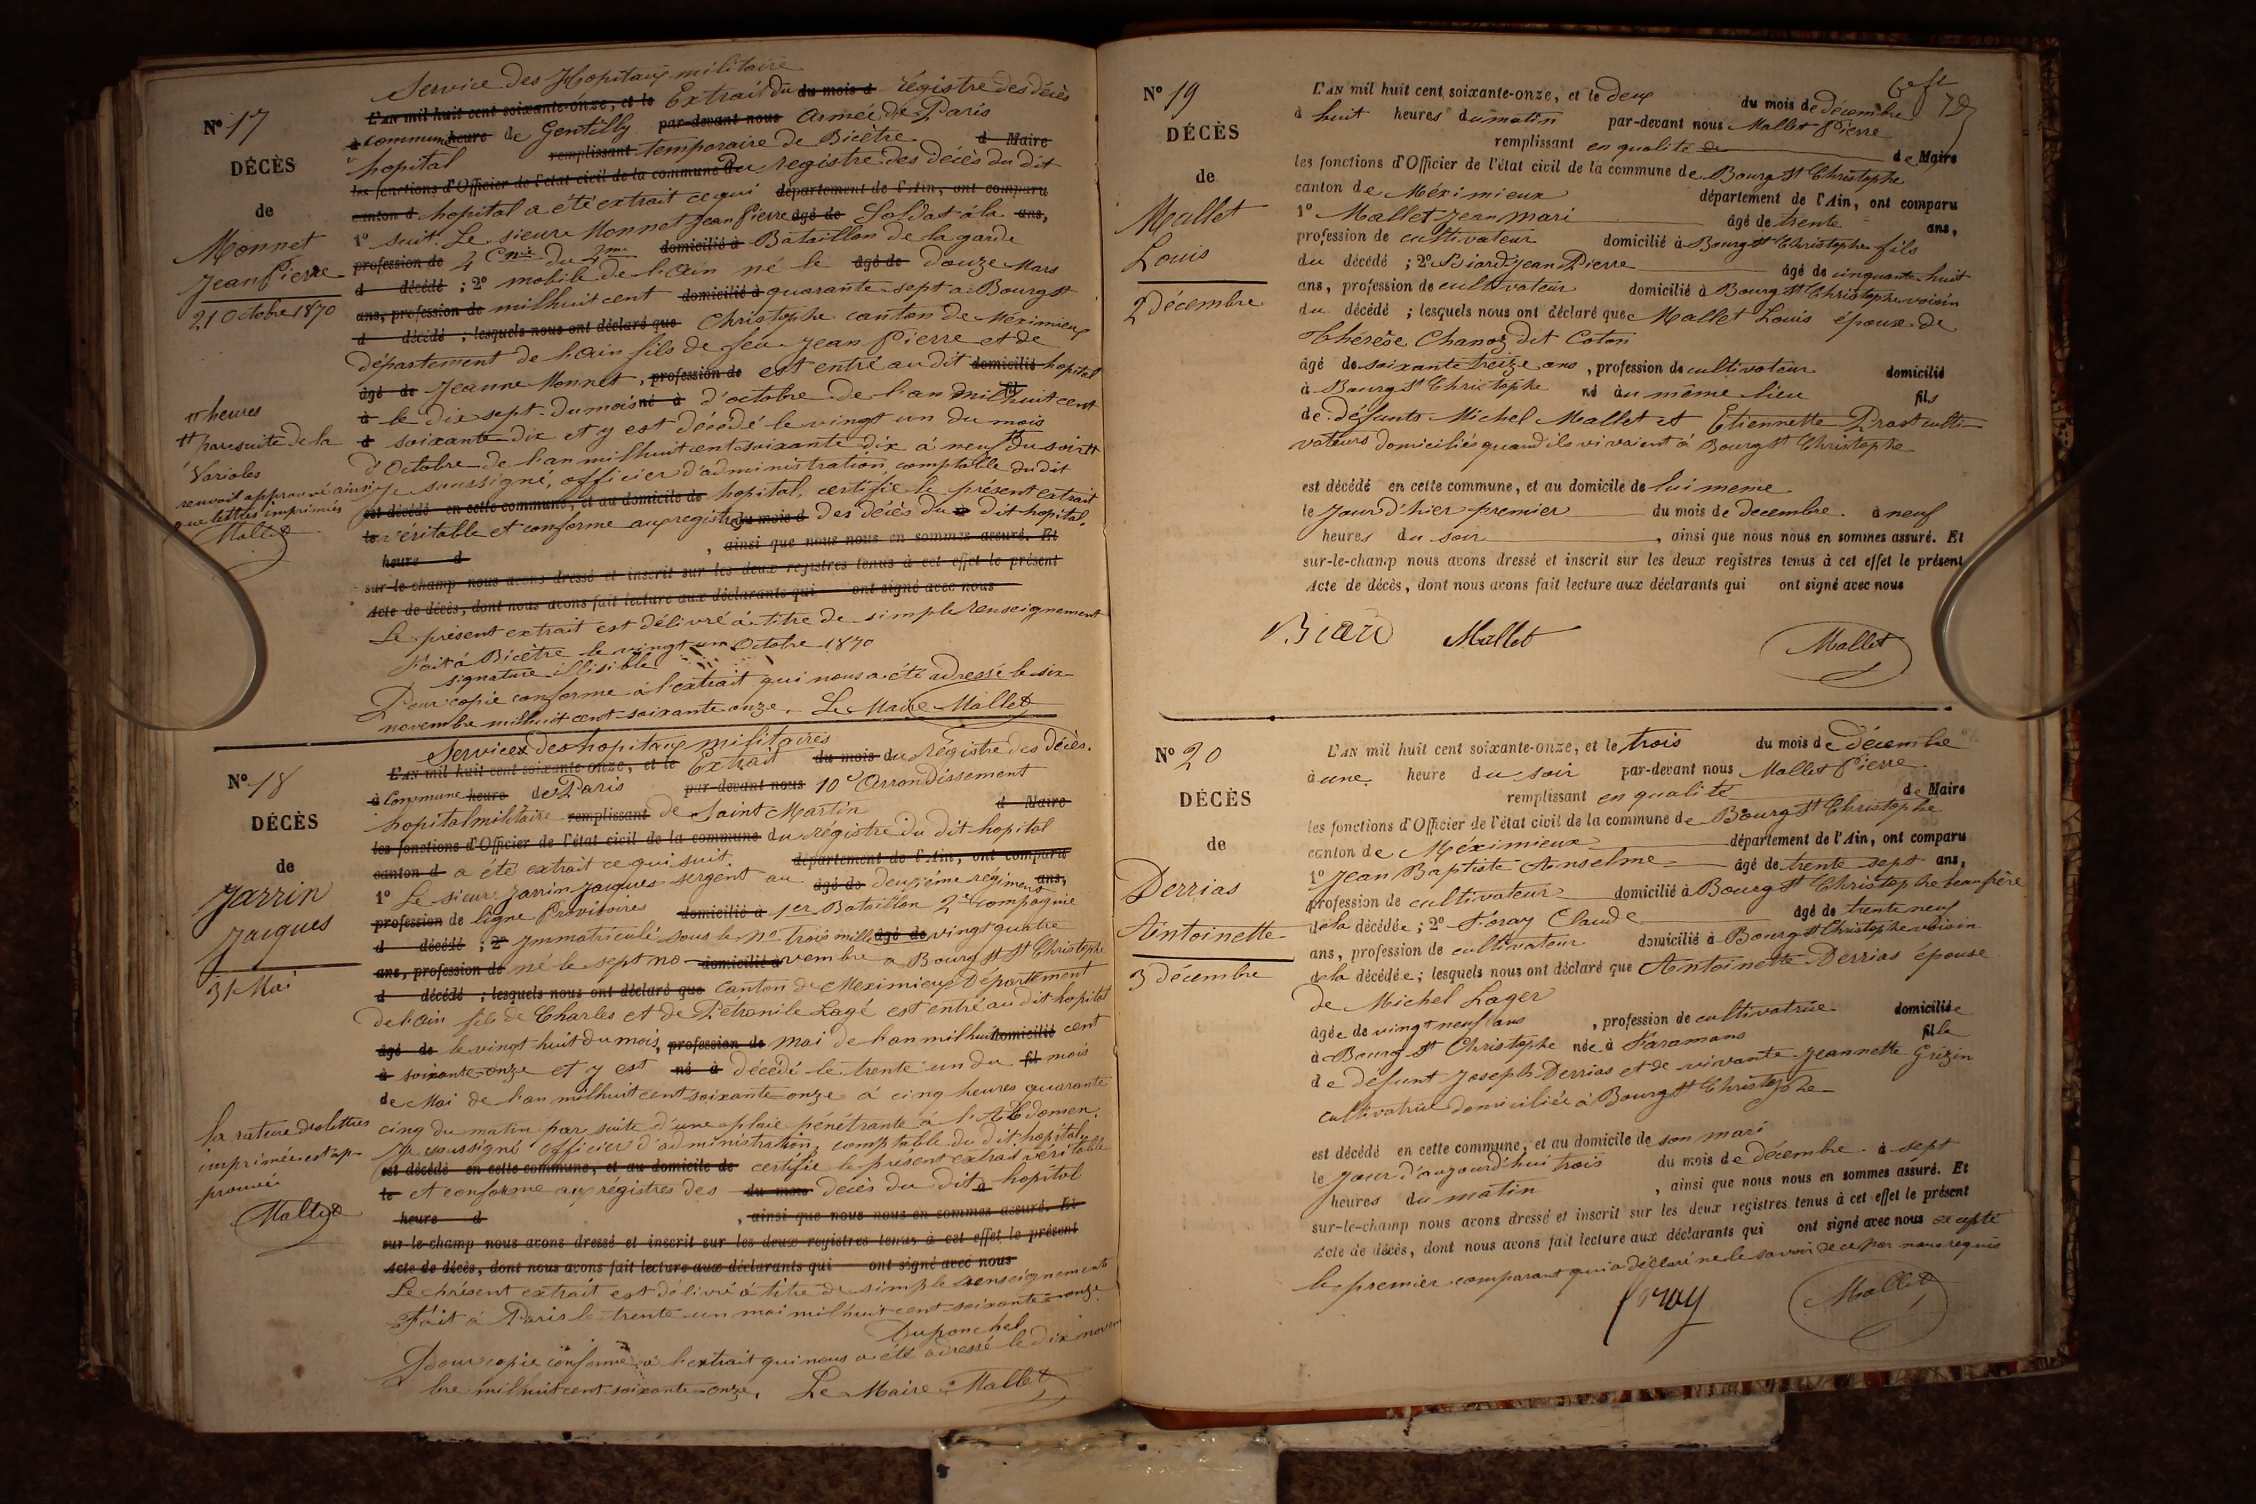 Service des Hopitaux militaire
N° 17
L'AN mil huit cent soixante-onze, et le Extrait du du mois d régistre des décès
à Commune heure de Gentilly par-devant nous armée de Paris
DÉCÈS
hopital remplissant temporaire de Bicêtre d Maire
les fonctions d'Officier de l'état civil de la commune Du registre des décès du dit
de
canton d hopital a été extrait ce qui département de l'Ain, ont comparu
Monnet
1° suit. Le sieur Monnet Jean Pierre âgé de Soldat à la ans,
Jean Pierre
profession de 4 Cnie du 4me domicilié à Bataillon de la garde
21 Octobre 1870
d décédé ; 2° mobile de l'ain né le âgé de douze Mars
ans, profession de mil huit cent domicilié à quarante-sept à Bourg St
d décédé ; lesquels nous ont déclaré que Christophe canton de Méximieux
département de l'ain fils de feu Jean Pierre et de
âgé de Jeanne Monnet, profession de est entré au dit domicilié hopital
à le dix sept du mois né à d'octobre de l'an mil fil huit cent
d soixante dix et y est décédé le vingt un du mois
d'Octobre de l'an mil huit cent soixante dix à neuf du soir
heures
par suite de la
Variole
renvoi approuvé ainsi
que lettres imprimés
Mallet
Je soussigné, officier d'administration, comptable du dit
est décédé en cette commune, et au domicile de hopital, certifie le présent extrait
le véritable et conforme aux registres du mois d des décès du dit hopital.
heure d , ainsi que nous nous en sommes assuré. Et
sur-le-champ nous avons dressé et inscrit sur les deux registres tenus à cet effet le présent
Acte de décès, dont nous avons fait lecture aux déclarants qui ont signé avec nous
Le présent extrait est délivré à titre de simple renseignement
Fait à Bicêtre le vingt un Octobre 1870
signature illisible
Pour copie conforme à l'extrait qui nous a été adressé le six
novembre mil huit cent soixante onze. Le Maire Mallet
Services des hopitaux militaires
N° 18
L'AN mil huit cent soixante-onze, et le Extrait du mois du Régistre des décès.
à Commune heure de Paris par-devant nous 10e Arrondissement
DÉCÈS
hopital militaire remplissant de Saint Martin d Maire
les fonctions d'Officier de l'état civil de la commune du régistre du dit hopital
de
canton d a été extrait ce qui suit. département de l'Ain, ont comparu
Jarrin
1° Le sieur Jarrin Jacques sergent au âgé de deuxième régiment ans,
Jacques
profession de ligne Provisoires domicilié à 1er Bataillon 2e compagnie
d décédé ; 2° Immatriculé sous le N° trois mille âgé de vingt quatre
31 Mai
ans, profession de né le sept no domicilié à vembre a Bourg St Christophe
d décédé ; lesquels nous ont déclaré que Canton de Meximieux Département
de l'ain fils de Charles et de Pétronile Lagé est entré au dit hopital
âgé de le vingt huit du mois, profession de mai de l'an mil huit domicilié cent
à soixante-onze et y est né à décédé le trente un du fil mois
de Mai de l'an mil huit cent soixante onze à cinq heures quarante
cinq du matin par suite d'une plaie pénétrante à l'Abdomen.
la rature des lettres
imprimées est ap-
prouvée
Mallet
Je soussigné officier d'administration, comptable du dit hopital,
est décédé en cette commune, et au domicile de certifie le présent extrait véritable
le et conforme aux régistres des du mois décès du dit à hopital
heure d , ainsi que nous nous en sommes assuré. Et
sur-le-champ nous avons dressé et inscrit sur les deux registres tenus à cet effet le présent
Acte de décès, dont nous avons fait lecture aux déclarants qui ont signé avec nous
Le présent extrait est délivré à titre de simple renseignement
Fait à Paris le trente un mai mil huit cent soixante-onze
Duponchel
Pour copie conforme à l'extrait qui nous a été adressé le dix novem
bre mil huit cent soixante-onze. Le Maire Mallet
N° 19
L'AN mil huit cent soixante-onze, et le deux du mois de décembre
à huit heures du matin par-devant nous Mallet Pierre
DÉCÈS
remplissant en qualité de de Maire
les fonctions d'Officier de l'état civil de la commune de Bourg St Christophe
de
canton de Méximieux département de l'Ain, ont comparu
Mallet
1° Mallet Jean mari âgé de trente ans,
Louis
profession de cultivateur domicilié à Bourg St Christophe fils
du décédé ; 2° Biard Jean Pierre âgé de cinquante-huit
2 décembre
ans, profession de cultivateur domicilié à Bourg St Christophe voisin
du décédé ; lesquels nous ont déclaré que Mallet Louis époux de
Thérèse Chanoz dit Coton
âgé de soixante treize ans , profession de cultivateur domicilié
à Bourg St Christophe né au même lieu fils
de défunts Michel Mallet et Etiennette Prost culti-
vateurs domiciliés quand ils vivaient à Bourg St Christophe
est décédé en cette commune, et au domicile de lui meme
le Jour d'hier premier du mois de decembre. à neuf
heures du soir , ainsi que nous nous en sommes assuré. Et
sur-le-champ nous avons dressé et inscrit sur les deux registres tenus à cet effet le présent
Acte de décès, dont nous avons fait lecture aux déclarants qui ont signé avec nous
Biard Mallet Mallet
N° 20
L'AN mil huit cent soixante-onze, et le trois du mois de décembre
à une heure du soir par-devant nous Mallet Pierre
DÉCÈS
remplissant en qualité de Maire
les fonctions d'Officier de l'état civil de la commune de Bourg St Christophe
de
canton de Méximieux département de l'Ain, ont comparu
Derrias
1° Jean Baptiste Anselme âgé de trente sept ans,
profession de cultivateur domicilié à Bourg St Christophe beau frère
Antoinette
de la décédée ; 2° Foray Claude âgé de trente neuf
ans, profession de cultivateur domicilié à Bourg St Christophe voisin
3 décembre
de la décédée ; lesquels nous ont déclaré que Antoinette Derrias épouse
de Michel Lager
âgée de vingt neuf ans , profession de cultivatrice domiciliée
à Bourg St Christophe née à Faramans fille
de defunt Joseph Derrias et de vivante Jeannette Grizin
cultivatrice domiciliée à Bourg St Christophe
est décédé en cette commune, et au domicile de son mari
le Jour d'aujourd'hui trois du mois de décembre. à sept
heures du matin , ainsi que nous nous en sommes assuré. Et
sur-le-champ nous avons dressé et inscrit sur les deux registres tenus à cet effet le présent
Acte de décès, dont nous avons fait lecture aux déclarants qui ont signé avec nous excepté
le premier comparant qui a déclaré ne le savoir de ce par nous requis
foray Mallet